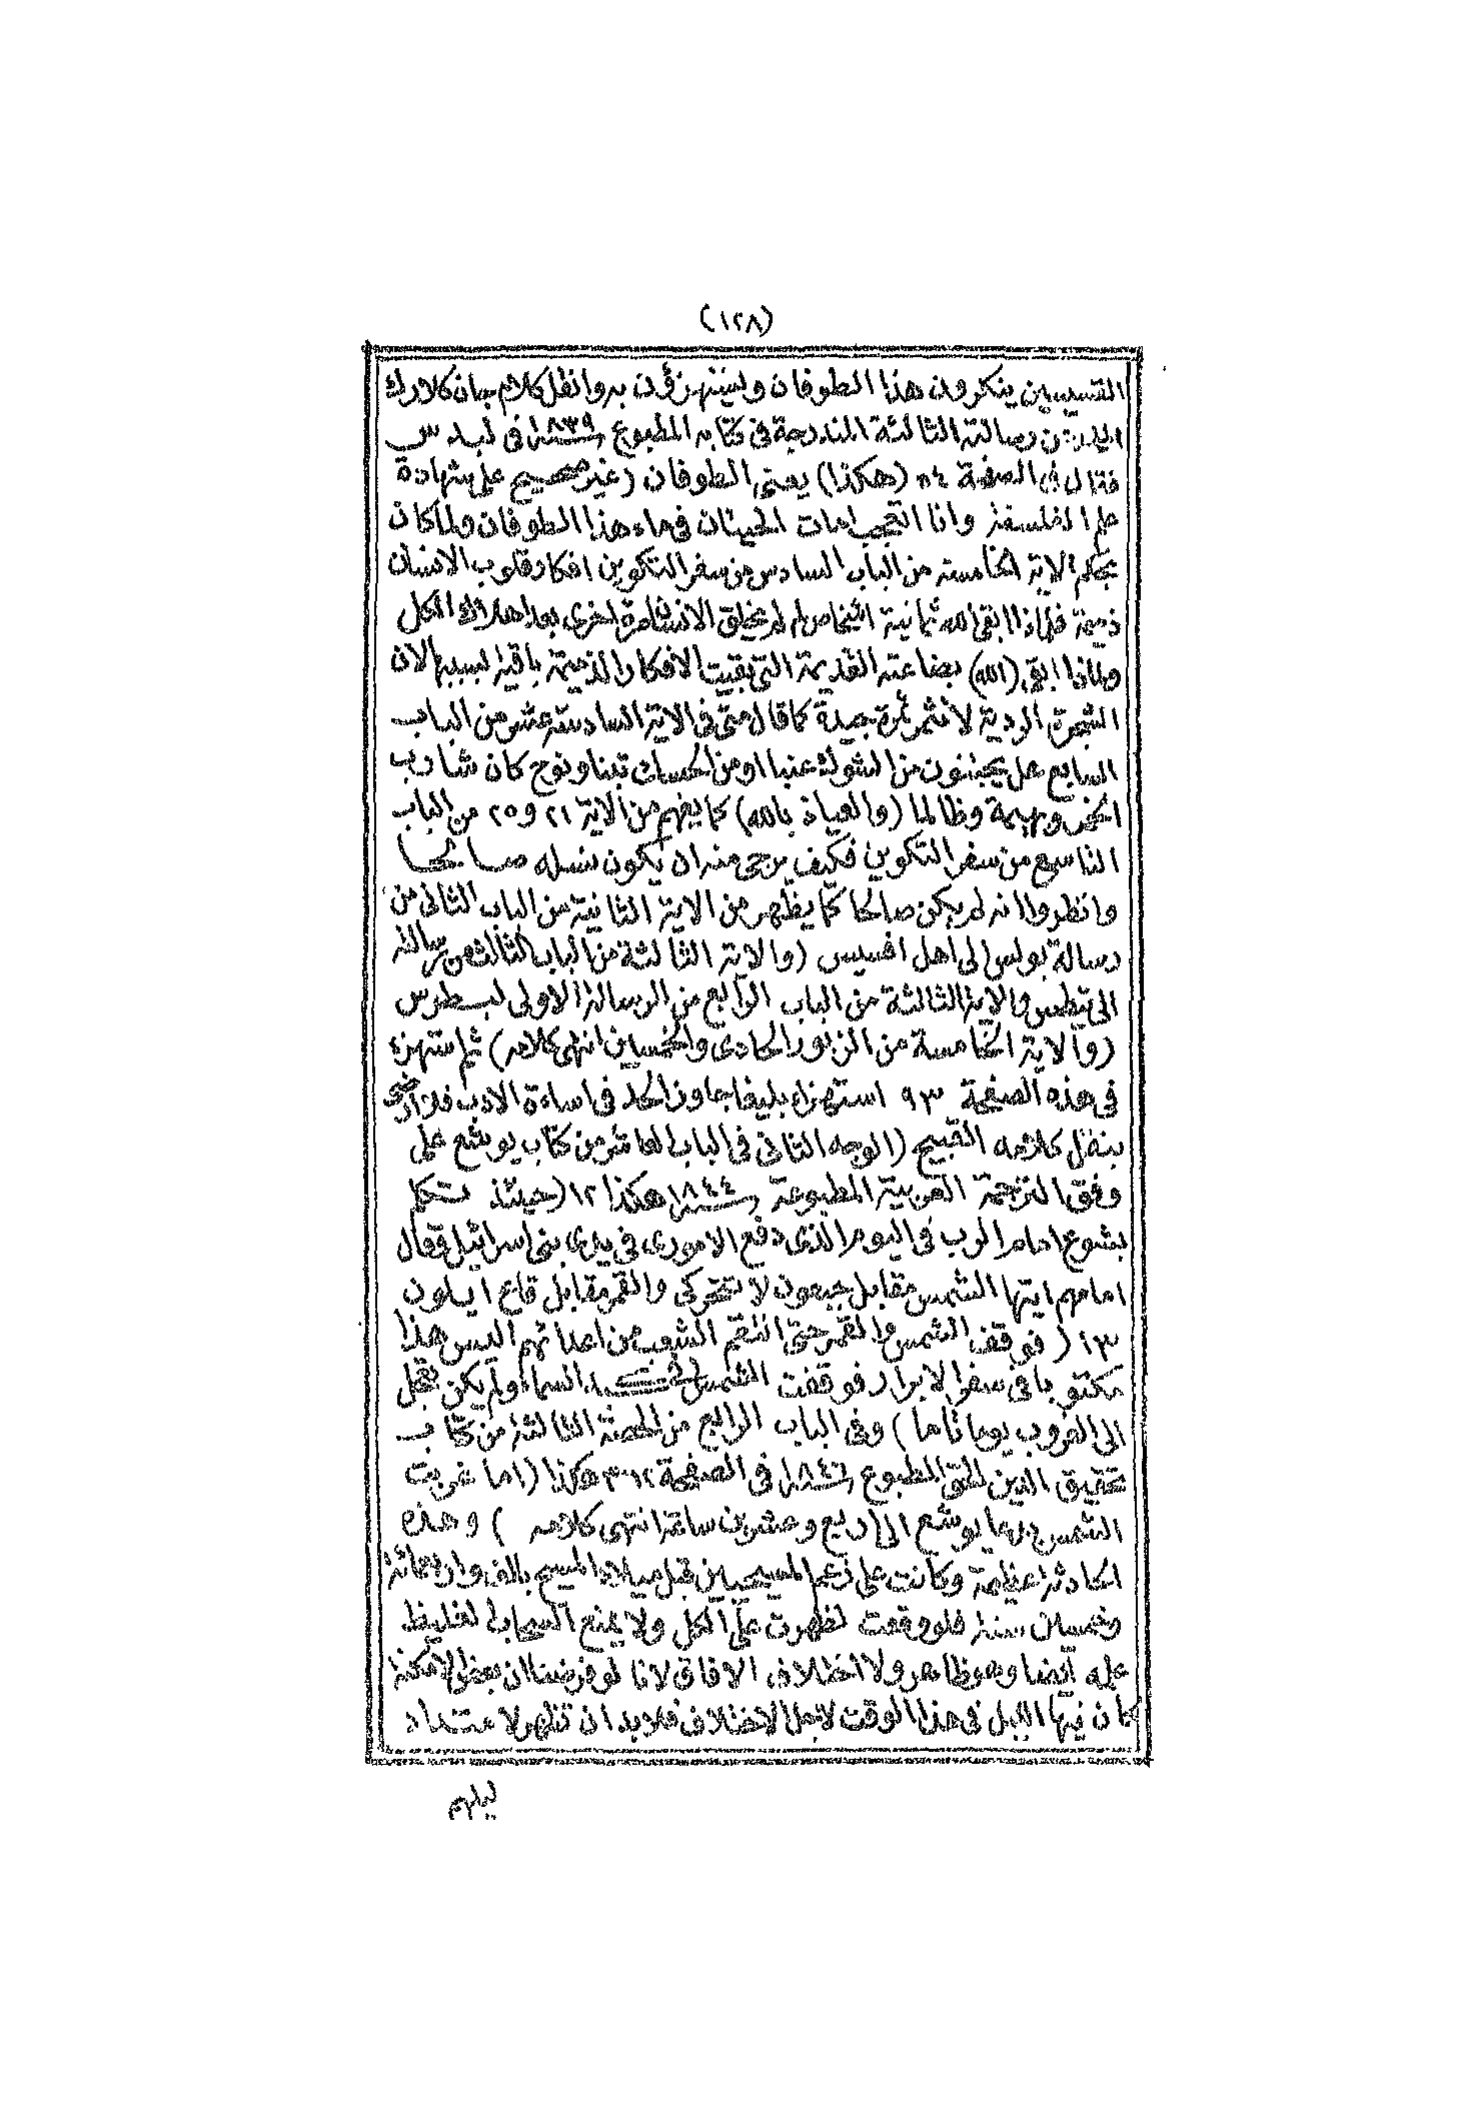 (١٢٨)
القسيسين ينكرون هذا الطوفان ويستهزؤن به وانقل كلام جان كلارك
الملحد من رسالته الثالثة المندرجة فى كتابه المطبوع سنة ١٨٣٩ فى ليدس
فقال فى الصفحة ٥٤ (هكذا) يعنى الطوفان (غير صحيح على شهادة
علم الفلسفة وانا اتعجب امات الحيتان فى ماء هذا الطوفان ولما كان
بحكم الاية الخامسة من الباب السادس من سفر التكوين افكار قلوب الانسان
ذميمة فلماذا ابقى الله ثمانية اشخاص لم لم يخلق الانسان مرة اخرى بعد اهلاك الكل
ولماذا ابقى (الله) بضاعته القديمة التى بقيت الافكار الذميمة باقية لسببها لان
الشجرة الردية لا تثمر ثمرة جيدة كما قال متى فى الاية السادسة عشر من الباب
السابع هل يجتنون من الشوك عنبا او من الحسك تينا ونوح كان شارب
الخمر وبهيمة وظالما (والعياذ بالله) كما يفهم من الاية ٢١ و٢٥ من الباب
التاسع من سفر التكوين فكيف يرجى منه ان يكون نسله صالحا
وانظروا انه لم يكن صالحا كما يظهر من الاية الثانية من الباب الثانى من
رسالة بولس الى اهل افسيس (والاية الثالثة من الباب الثالث من رسالته
الى تيطس والاية الثالثة من الباب الرابع من الرسالة الاولى لبطرس
(والاية الخامسة من الزبور الحادى والخمسين انتهى كلامه) ثم استهزء
فى هذه الصفحة ٩٣ استهزاء بليغا جاوز الحد فى اساءة الادب فلا ارضى
بنقل كلامه القبيح (الوجه الثانى فى الباب العاشر من كتاب يوشع على
وفق الترجمة العربية المطبوعة سنة ١٨٤٤ هكذا ١٢ (حينئذ تكلم
يشوع امام الرب فى اليوم الذى دفع الامورى فى يدى بنى اسرائيل وقال
امامهم ايتها الشمس مقابل جبعون لا تتحركى والقمر مقابل قاع ايلون
١٣ ( فوقف الشمس والقمر حتى انتقم الشعب من اعدائهم اليس هذا
مكتوبا فى سفر الابرار فوقفت الشمس فى كبد السماء ولم يكن تعجل
الى الغروب يوما تاما ) وفى الباب الرابع من الحصة الثالثة من كتاب
تحقيق الدين الحق المطبوع سنة ١٨٤٦ فى الصفحة ٣٦٢ هكذا (اما غربت
الشمس بدعاء يوشع الى اربع وعشرين ساعة انتهى كلامه ) وهذه
الحادثة عظيمة وكانت على زعم المسيحيين قبل ميلاد المسيح بالف واربعمائة
وخمسين سنة فلو وقعت لظهرت على الكل ولا يمنع السحاب الغليظ
علمه ايضا وهو ظاهر ولا اختلاف الافاق لانا لو فرضنا ان بعض الامكنة
كان فيها الليل فى هذا الوقت لاجل الاختلاف فلا بد ان تظهر لامتداد
ليلهم